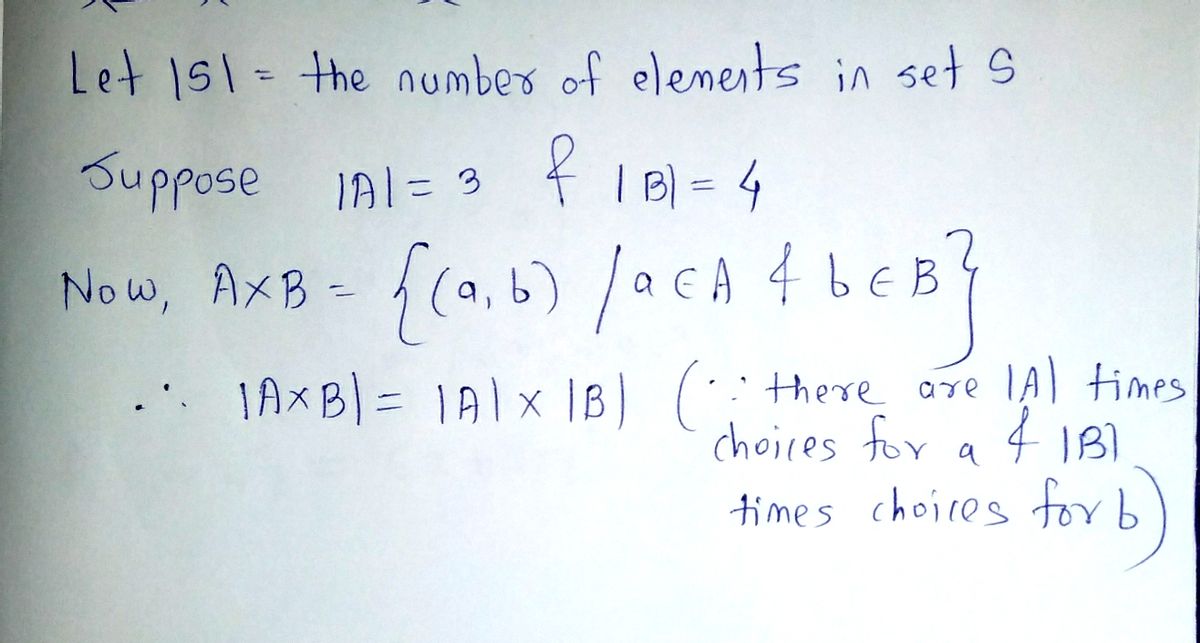 Let |S| = the number of elements in set S
Suppose |A| = 3 & |B| = 4
Now, A×B = {(a, b) / a ∈ A & b ∈ B}
∴ |A×B| = |A| × |B| (∵ there are |A| times
choices for a & |B|
times choices for b)